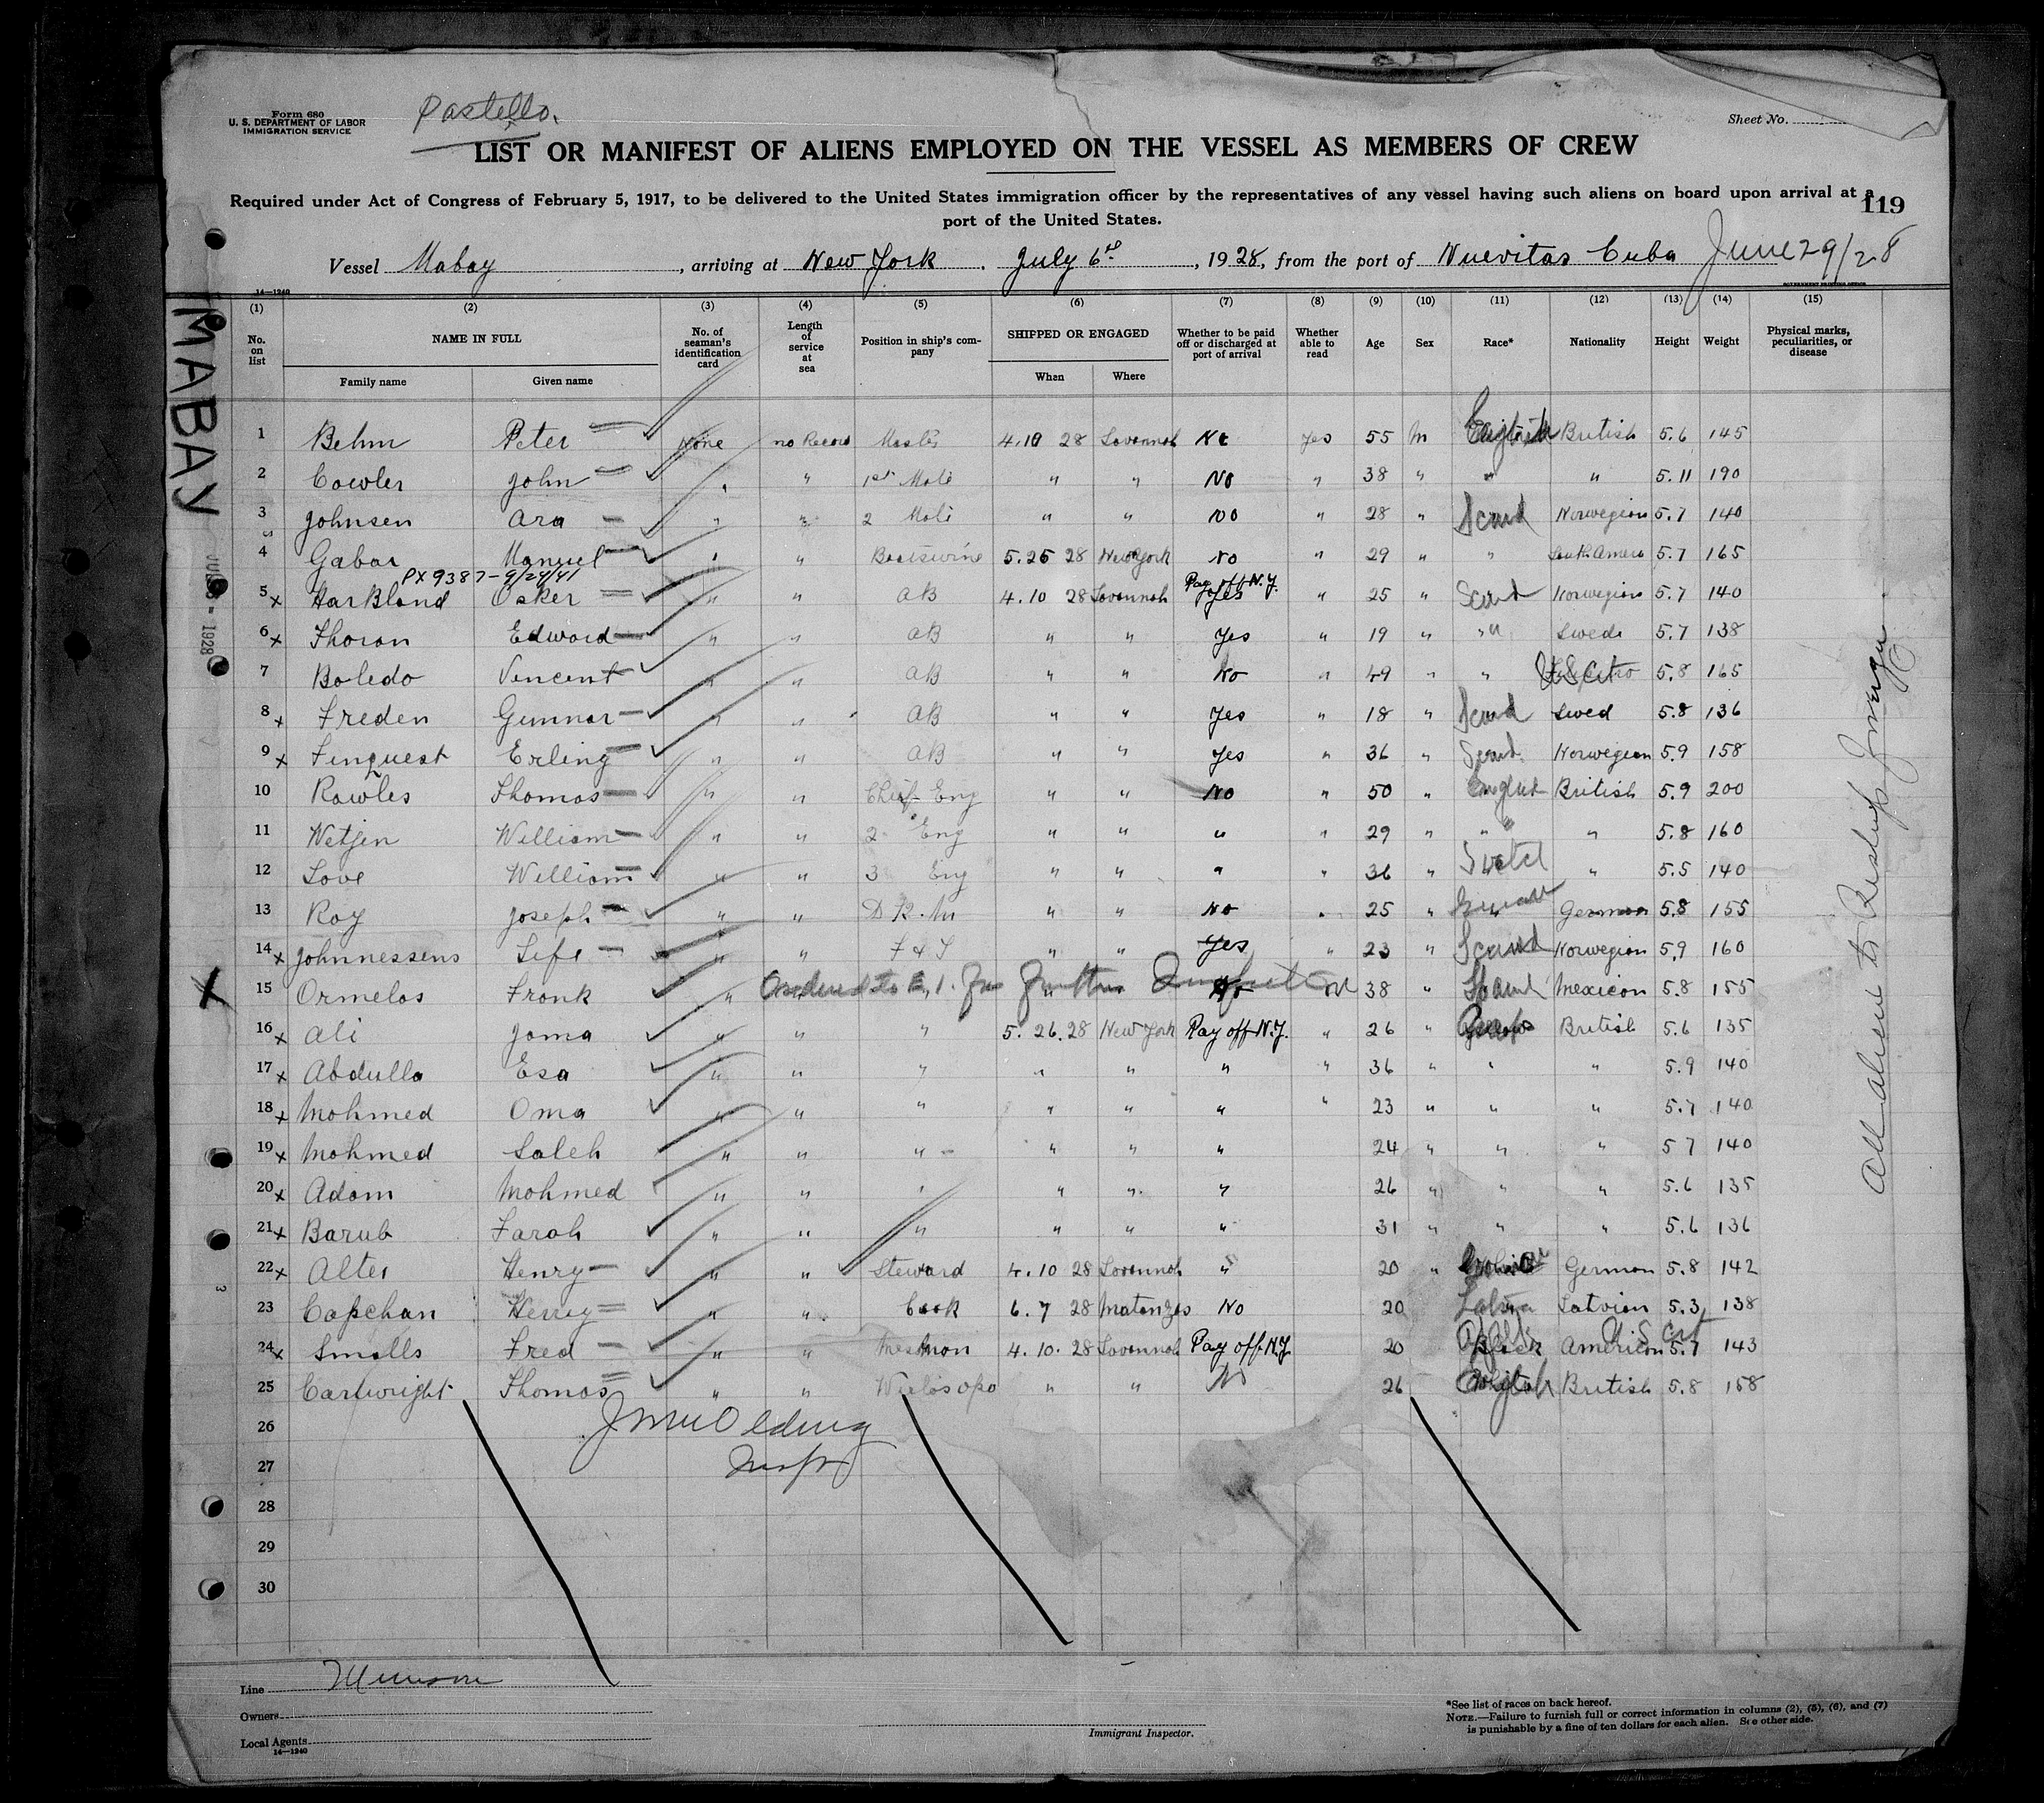 Form 680
U. S. DEPARTMENT OF LABOR
IMMIGRATION SERVICE
Pastello.
Sheet No.
LIST OR MANIFEST OF ALIENS EMPLOYED ON THE VESSEL AS MEMBERS OF CREW
Required under Act of Congress of February 5, 1917, to be delivered to the United States immigration officer by the representatives of any vessel having such aliens on board upon arrival at a
port of the United States.
119
Vessel Mabay, arriving at New York. July 6th, 1928, from the port of Nuevitas Cuba June 29/28
14—1240
MABAY
(1) (2) (3) (4) (5) (6) (7) (8) (9) (10) (11) (12) (13) (14) (15)
No. on list NAME IN FULL No. of seaman's identification card Length of service at sea Position in ship's company SHIPPED OR ENGAGED Whether to be paid off or discharged at port of arrival Whether able to read Age Sex Race* Nationality Height Weight Physical marks, peculiarities, or disease
Family name Given name When Where
1 Behm Peter None no Record Master 4.10 28 Savannah No Yes 55 M English British 5.6 145
2 Cowler John " " 1st Mate " " No " 38 " " " 5.11 190
3 Johnsen Ara " " 2 Mate " " No " 28 " Scand Norwegian 5.7 140
4 Gabar Manuel " " 5.25 28 New York No " 29 " " South Amer 5.7 165
PX 9387-9/24/41
5 x Harkland Osker " " AB 4.10 28 Savannah Yes Pay off N.Y. " 25 " Scand Norwegian 5.7 140
6 x Thoran Edward " " AB " " Yes " 19 " " Swede 5.7 138
7 Boledo Vencent " " AB " " No " 49 " " U S Cit 5.8 165
8 x Freden Gunnar " " AB " " Yes " 18 " Scand Swed 5.8 136
9 x Finquest Erling " " AB " " Yes " 36 " Scand Norwegian 5.9 158
10 Rowles Thomas " " Chief Eng " " No " 50 " English British 5.9 200
11 Wetjen William " " 2 Eng " " " " 29 " " " 5.8 160
12 Love William " " 3 Eng " " " " 36 " Scotch " 5.5 140
13 Roy Joseph " " D K. M " " No " 25 " German German 5.8 155
14 x Johnnessens Life " " F & T " " Yes " 23 " Scand Norwegian 5.9 160
15 Ormelos Frank " Ordered to E. I. for further " No 38 " Mexican 5.8 155
16 x Ali Joma " " " 5. 26. 28 New York Pay off N.Y. " 26 " British 5.6 135
17 x Abdulla Esa " " " " " " " 36 " " " 5.9 140
18 x Mohmed Oma " " " " " " " 23 " " " 5.7 140
19 x Mohmed Saleh " " " " " " 24 " " " 5 7 140
20 x Adam Mohmed " " " " " " 26 " " " 5.6 135
21 x Barub Farah " " " " " " 31 " " " 5.6 136
22 x Alter Henry " " Steward 4.10 28 Savannah " 20 " German 5.8 142
23 Capchan Henry " " Cook 6.7 28 Matanzas No 20 Latvian 5.3 138
24 x Smalls Fred " " Messman 4.10.28 Savannah Pay off N.Y 20 Black American U S Cit 5.7 143
25 Cartwright Thomas " " " " No 26 English British 5.8 158
26
27
28
29
30
Insp
All aliens to
JUL 6 - 1928
Line Munson
Owners
Local Agents
14—1240
Immigrant Inspector.
*See list of races on back hereof.
NOTE.—Failure to furnish full or correct information in columns (2), (5), (6), and (7)
is punishable by a fine of ten dollars for each alien. See other side.